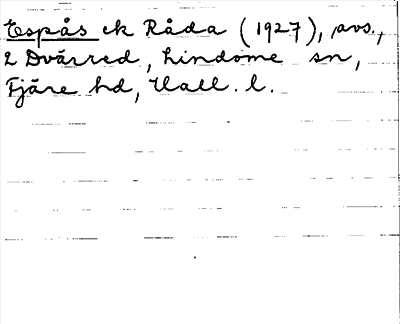 Espås ek Råda (1927), avs.,
2 Dvärred, Lindome sn,
Fjäre hd, Hall. l.